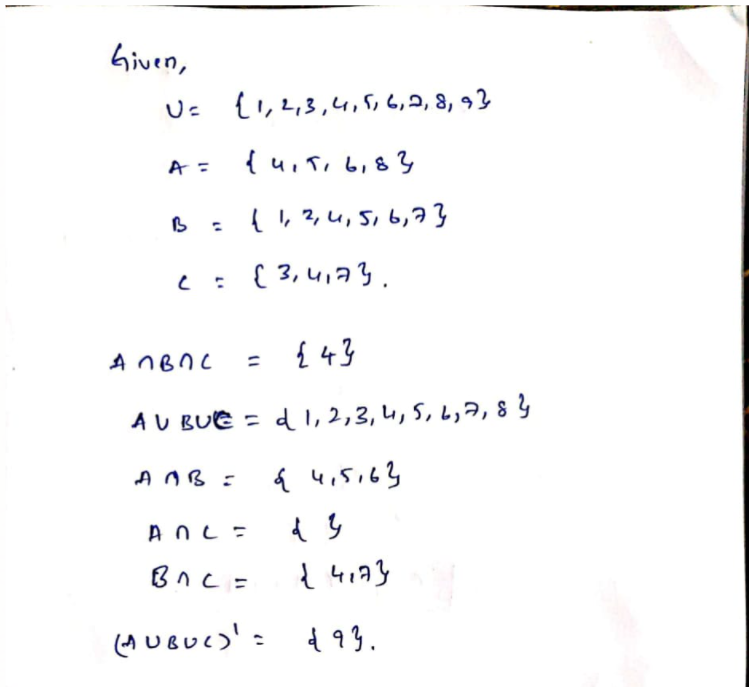 Given,
U = {1,2,3,4,5,6,7,8,9}
A = {4,5,6,8}
B = {1,2,4,5,6,7}
C = {3,4,7}.
A∩B∩C = {4}
A∪B∪C = {1,2,3,4,5,6,7,8}
A∩B = {4,5,6}
A∩C = { }
B∩C = {4,7}
(A∪B∪C)' = {9}.